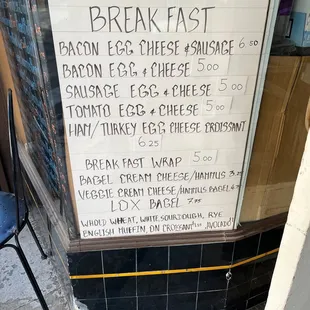 BREAKFAST
BACON EGG CHEESE & SAUSAGE 6.50
BACON EGG & CHEESE 5.00
SAUSAGE EGG & CHEESE 5.00
TOMATO EGG & CHEESE 5.00
HAM/TURKEY EGG CHEESE CROISSANT
6.25
BREAKFAST WRAP 5.00
BAGEL CREAM CHEESE/HAMMUS
VEGGIE CREAM CHEESE/HAMMUS BAGEL
LOX BAGEL
WHOLD WHEAT, WHITE, SOURDOUGH, RYE
ENGLISH MUFFIN, ON CROISSANT AVOCADO